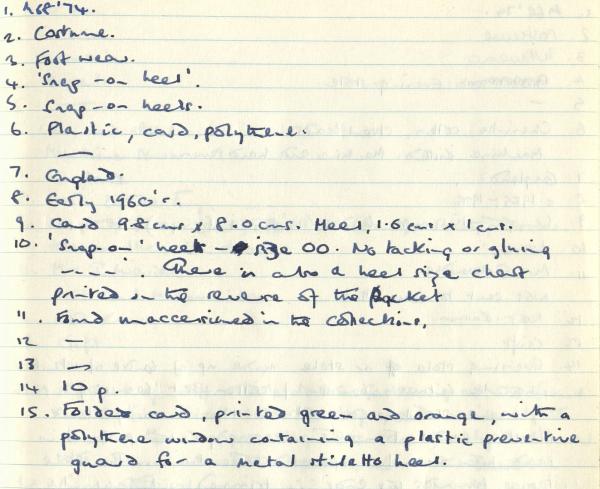 1. MGR'74.
2. Costume.
3. Footwear.
4. 'Snap-on heel'.
5. Snap-on heels.
6. Plastic, card, polythene.
—
7. England.
8. Early 1960's.
9. Card 9.8 cms x 8.0 cms. Heel, 1.6 cms x 1 cms.
10. 'Snap-on' heel - size 00. No tacking or gluing
- - - -' There is also a heel size chart
printed on the reverse of the packet
11. Found unaccessioned in the collections.
12 —
13 —
14 10p.
15. Folded card, printed green and orange, with a
polythene window containing a plastic preventive
guard for a metal stiletto heel.